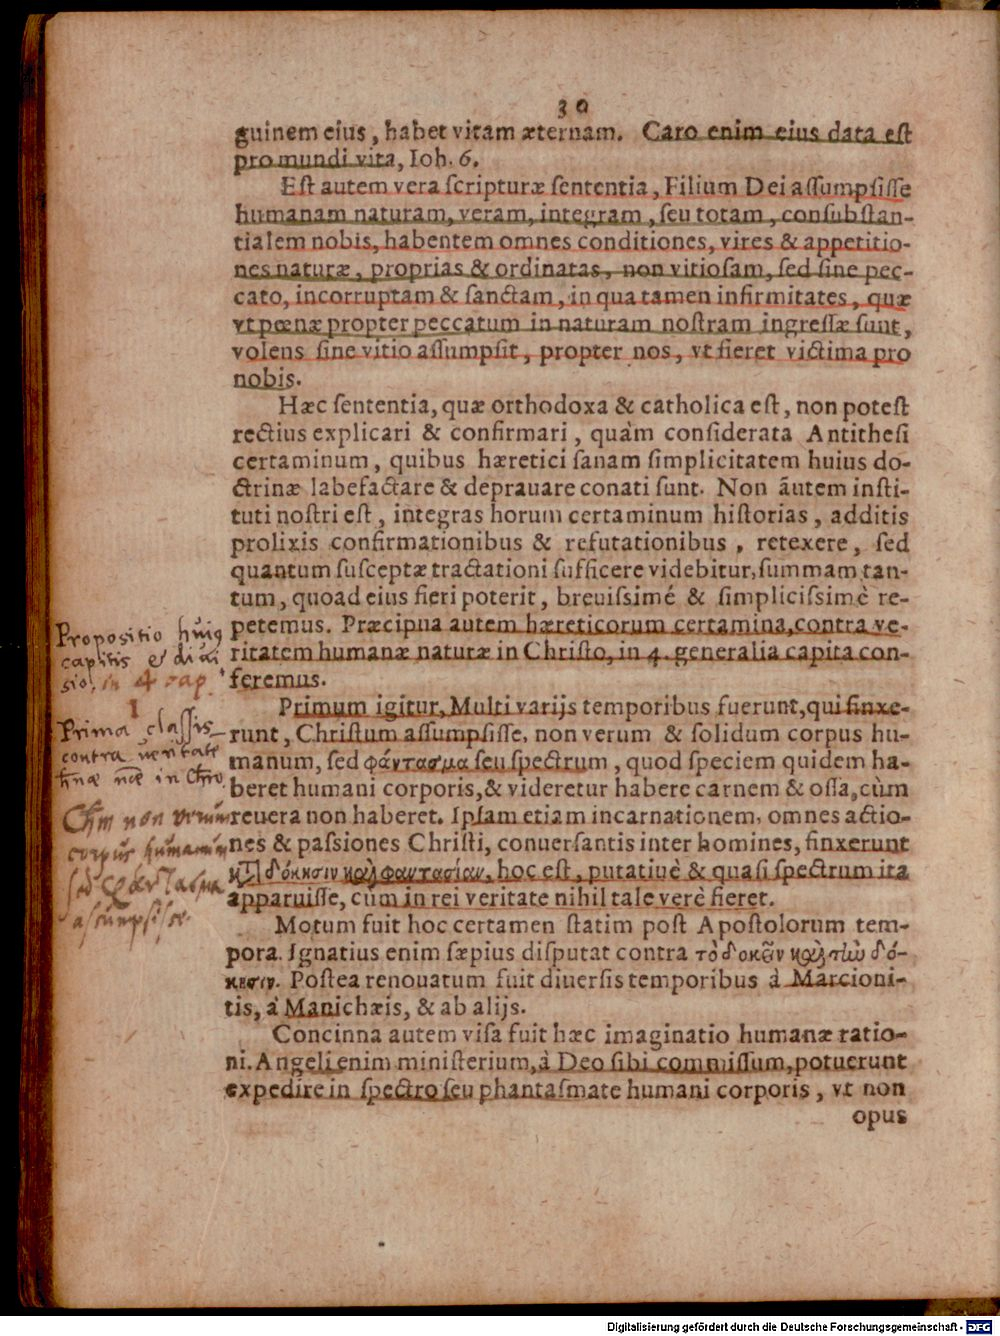 30
guinem eius, habet vitam æternam. Caro enim eius data est
pro mundi vita, Ioh. 6.
Est autem vera scripturæ sententia, Filium Dei aſſumpſiſſe
humanam naturam, veram, integram, ſeu totam, conſubſtan-
tialem nobis, habentem omnes conditiones, vires & appetitio-
nes naturæ, proprias & ordinatas, non vitioſam, ſed ſine pec-
cato, incorruptam & ſanctam, in qua tamen infirmitates, quæ
vt pœnæ propter peccatum in naturam noſtram ingreſſæ ſunt,
volens ſine vitio aſſumpſit, propter nos, vt fieret victima pro
nobis.
Hæc ſententia, quæ orthodoxa & catholica eſt, non poteſt
rectius explicari & confirmari, quàm conſiderata Antitheſi
certaminum, quibus hæretici ſanam ſimplicitatem huius do-
ctrinæ labefactare & deprauare conati ſunt. Non autem inſti-
tuti noſtri eſt, integras horum certaminum hiſtorias, additis
prolixis confirmationibus & refutationibus, retexere, ſed
quantum ſuſceptæ tractationi ſufficere videbitur, ſummam tan-
tum, quoad eius fieri poterit, breuiſsimé & ſimpliciſsimè re-
petemus. Præcipua autem hæreticorum certamina, contra ve-
ritatem humanæ naturæ in Chriſto, in 4. generalia capita con-
feremus.
Propositio huiq
capitis & diui
sio, in 4 cap.
1
Primum igitur, Multi varijs temporibus fuerunt, qui finxe-
runt, Chriſtum aſſumpſiſſe, non verum & ſolidum corpus hu-
manum, ſed φάντασμα ſeu ſpectrum, quod ſpeciem quidem ha-
beret humani corporis, & videretur habere carnem & oſſa, cùm
reuera non haberet. Ipſam etiam incarnationem, omnes actio-
nes & paſsiones Chriſti, conuerſantis inter homines, finxerunt
κατὰ δόκησιν καὶ φαντασίαν, hoc eſt, putatiuè & quaſi ſpectrum ita
apparuiſſe, cùm in rei veritate nihil tale verè fieret.
Prima classis
contra veritatē
in Chro
Chm non verum
corpus humanum
sed φάντασμα
assumpsisse
Motum fuit hoc certamen ſtatim poſt Apoſtolorum tem-
pora. Ignatius enim ſæpius diſputat contra τὸ δοκεῖν καὶ τὴν δό-
κησιν. Poſtea renouatum fuit diuerſis temporibus à Marcioni-
tis, à Manichæis, & ab alijs.
Concinna autem viſa fuit hæc imaginatio humanæ ratio-
ni. Angeli enim miniſterium, à Deo ſibi commiſſum, potuerunt
expedire in ſpectro ſeu phantaſmate humani corporis, vt non
opus
Digitalisierung gefördert durch die Deutsche Forschungsgemeinschaft - DFG